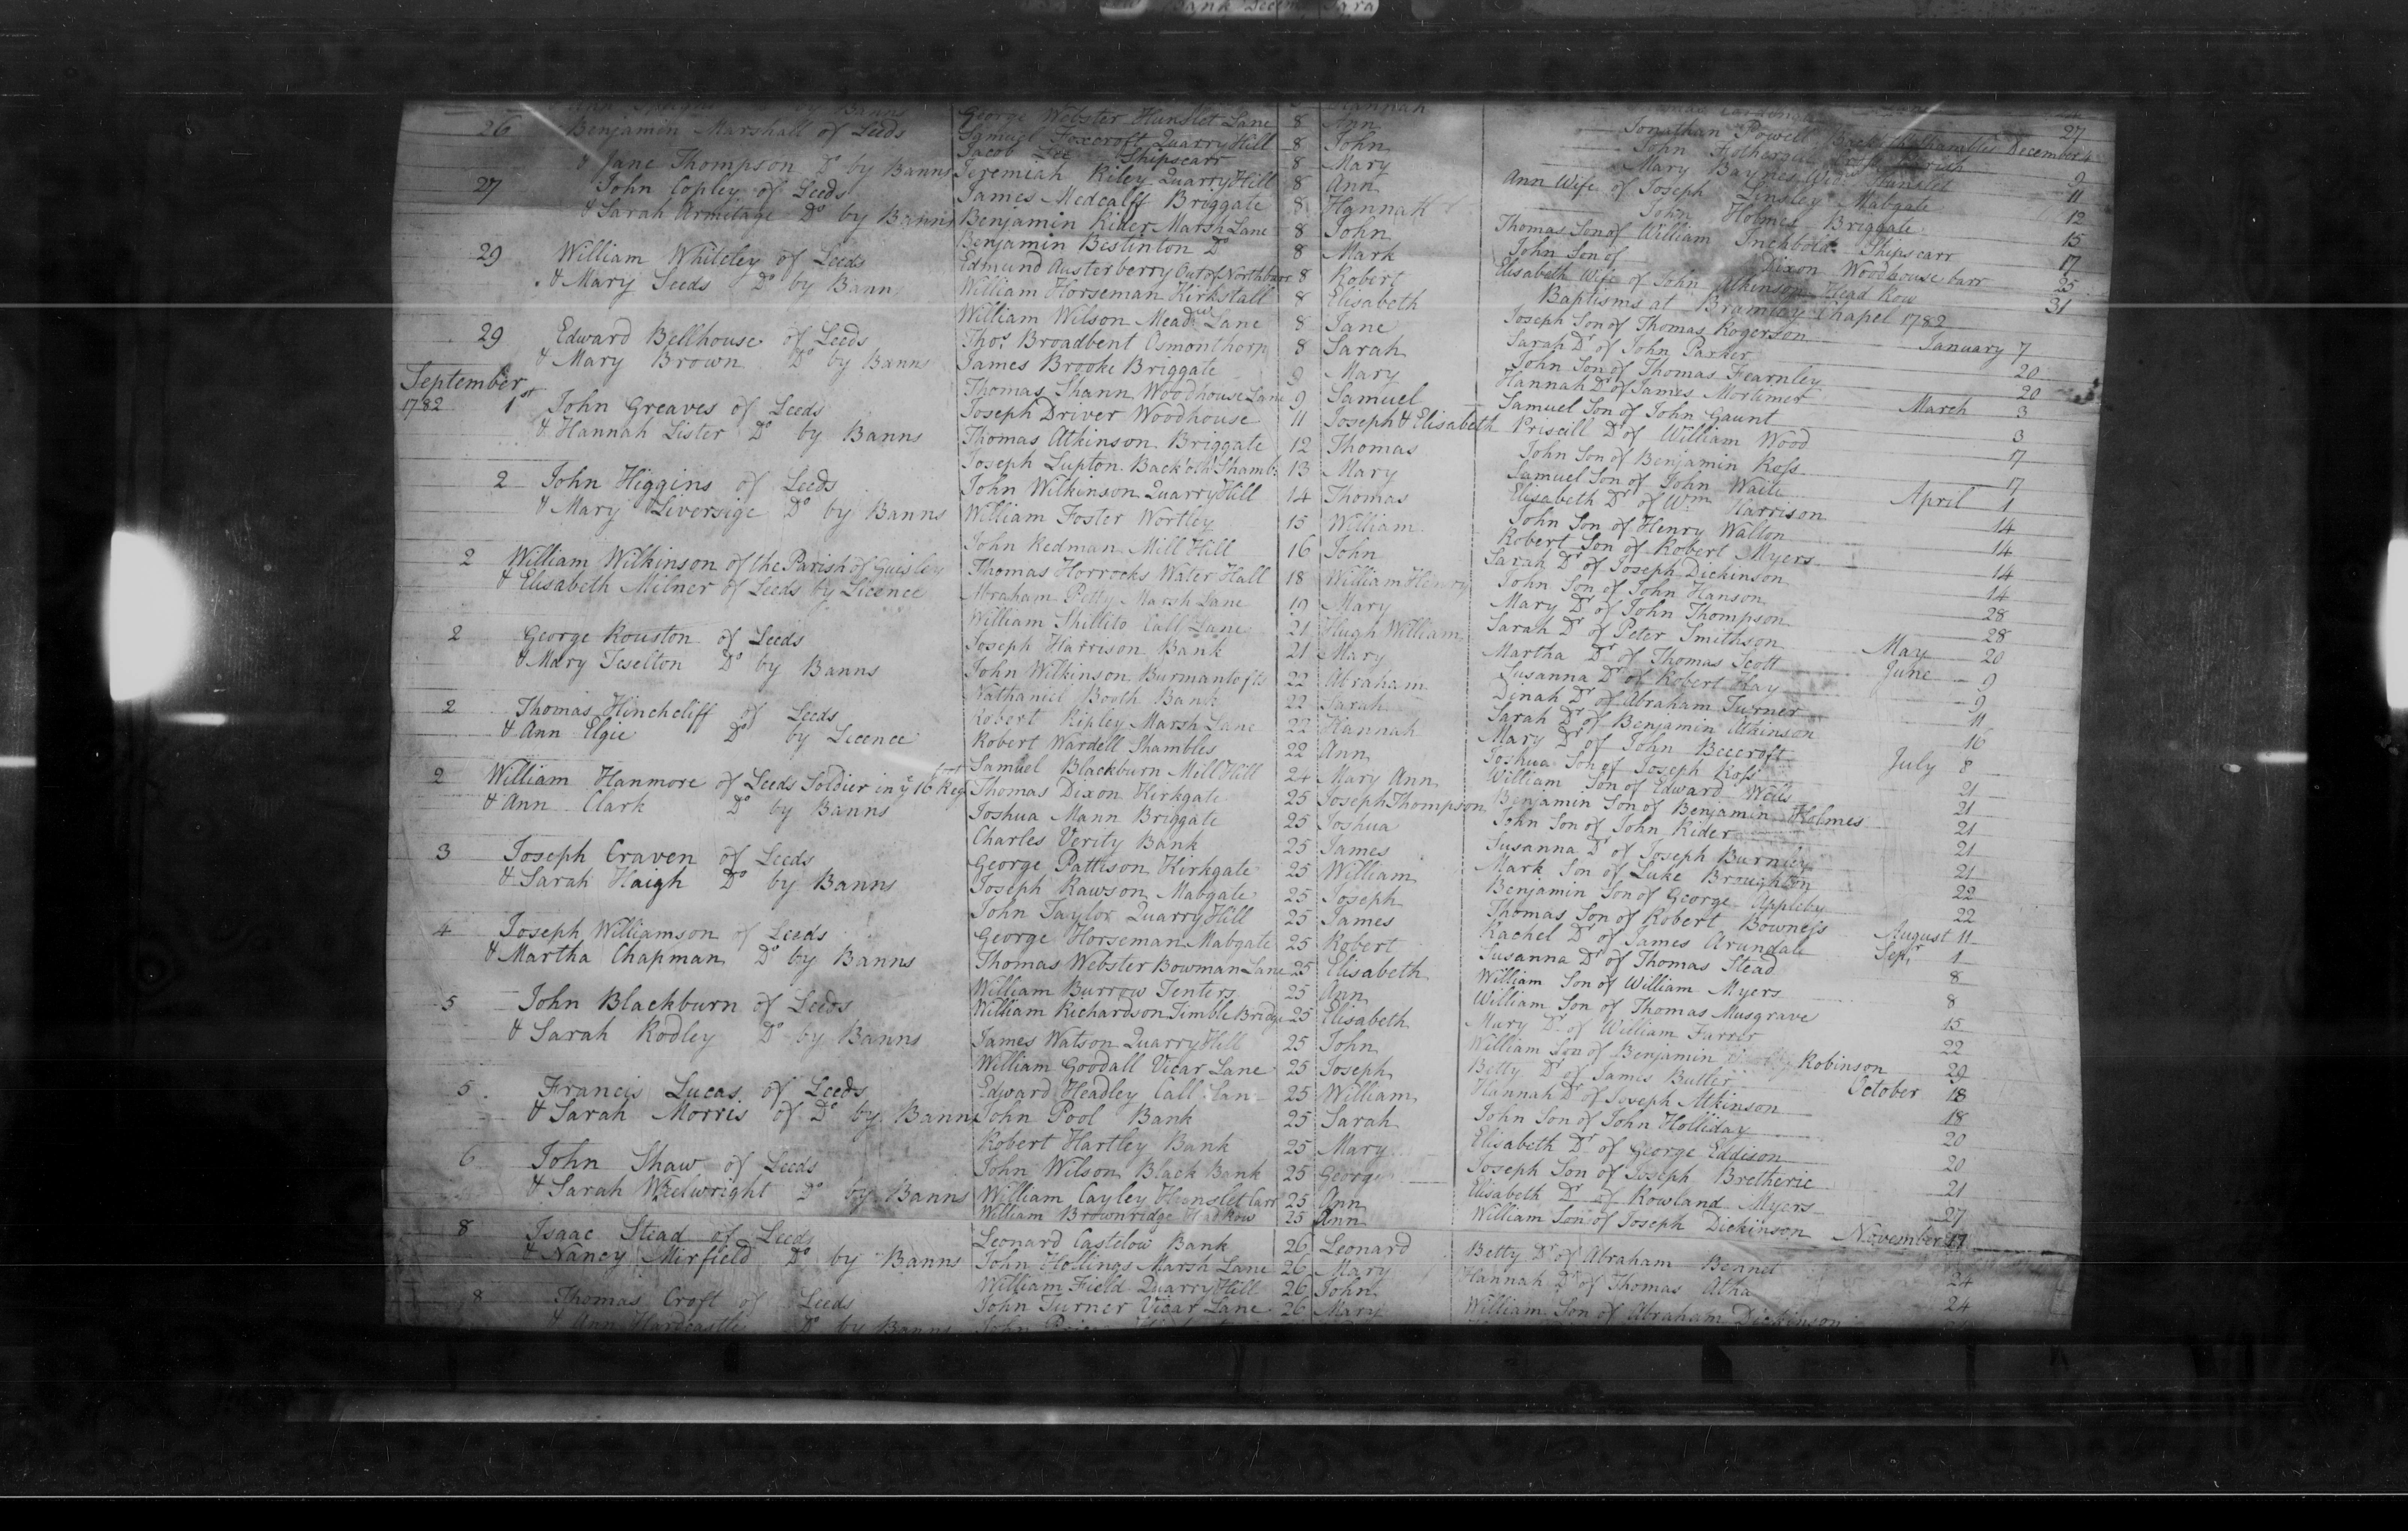 26 Benjamin Marshall of Leeds
& Jane Thompson Do by Banns
27 John Copley of Leeds
& Sarah Armitage Do by Banns
29 William Whiteley of Leeds
& Mary Leeds Do by Bann
29 Edward Bellhouse of Leeds
& Mary Brown Do by Banns
September
1782 1st John Greaves of Leeds
& Hannah Lister Do by Banns
2 John Higgins of Leeds
& Mary Liversige Do by Banns
2 William Wilkinson of the Parish of Guisley
& Elisabeth Milner of Leeds by Licence
2 George Rouston of Leeds
& Mary Teselton Do by Banns
2 Thomas Hincheliff of Leeds
& Ann Elgie Do by Licence
2 William Hanmore of Leeds Soldier in ye 16 Reg
& Ann Clark Do by Banns
3 Joseph Craven of Leeds
& Sarah Haigh Do by Banns
4 Joseph Williamson of Leeds
& Martha Chapman Do by Banns
5 John Blackburn of Leeds
& Sarah Rodley Do by Banns
5 Francis Lucas of Leeds
& Sarah Morris of Do by Banns
6 John Shaw of Leeds
& Sarah Wheelwright Do by Banns
8 Isaac Stead of Leeds
& Nancy Mirfield Do by Banns
8 Thomas Croft of Leeds
& Ann Hardcastle Do by Banns
George Webster Hunslet Lane 8 Ann
Samuel Foxcroft Quarry Hill 8 John
Jacob Lee Shipscarr 8 Mary
Jeremiah Riley Quarry Hill 8 Ann
James Medcalf Briggate 8 Hannah
Benjamin Rider Marsh Lane 8 John
Benjamin Bestinton Do 8 Mark
Edmund Austerberry Out of Northbarr 8 Robert
William Horseman Kirkstall 8 Elisabeth
William Wilson Meadw Lane 8 Jane
Thos Broadbent Osmonthorp 8 Sarah
James Brooke Briggate 9 Mary
Thomas Shann Woodhouse Lane 9 Samuel
Joseph Driver Woodhouse 11 Joseph & Elisabeth
Thomas Atkinson Briggate 12 Thomas
Joseph Lupton Back oth Shamb: 13 Mary
John Wilkinson Quarry Hill 14 Thomas
William Foster Wortley 15 William
John Redman Mill Hill 16 John
Thomas Horrocks Water Hall 18 William Henry
Abraham Petty Marsh Lane 19 Mary
William Shillito Call Lane 21 Hugh William
Joseph Harrison Bank 21 Mary
John Wilkinson Burmantofts 22 Abraham
Nathaniel Booth Bank 22 Sarah
Robert Ripley Marsh Lane 22 Hannah
Robert Wardell Shambles 22 Ann
Samuel Blackburn Mill Hill 24 Mary Ann
Thomas Dixon Kirkgate 25 Joseph Thompson
Joshua Mann Briggate 25 Joshua
Charles Verity Bank 25 James
George Pattison Kirkgate 25 William
Joseph Rawson Mabgate 25 Joseph
John Taylor Quarry Hill 25 James
George Horseman Mabgate 25 Robert
Thomas Webster Bowman Lane 25 Elisabeth
William Burrow Tenters 25 Ann
William Richardson Timble Bridge 25 Elisabeth
James Watson Quarry Hill 25 John
William Goodall Vicar Lane 25 Joseph
Edward Headley Call Lane 25 William
John Pool Bank 25 Sarah
Robert Hartley Bank 25 Mary
John Wilson Black Bank 25 George
William Cayley Hunslet Carr 25 Ann
William Brownridge Head Row 25 Ann
Leonard Castelow Bank 26 Leonard
John Hollings Marsh Lane 26 Mary
William Field Quarry Hill 26 John
John Turner Vicar Lane 26 Mary
27
Jonathan Powell Back Shambles December 4
John Fothergill
Mary Baynes Wid. Hunslet 9
Ann Wife of Joseph Linsley Mabgate 11
John Holmes Briggate 12
Thomas Son of William Inchbold Shipscarr 15
John Son of Dixon Woodhouse barr 17
Elisabeth Wife of John Atkinson Head Row 25
31
Baptisms at Bramley Chapel 1782
Joseph Son of Thomas Rogerson January 7
Sarah Dr of John Parker 20
John Son of Thomas Fearnley 20
Hannah Dr of James Mortimer March 3
Samuel Son of John Gaunt 3
Priscill Dr of William Wood 17
John Son of Benjamin Ross 17
Samuel Son of John Waite April 1
Elisabeth Dr of Wm Harrison 14
John Son of Henry Walton 14
Robert Son of Robert Myers 14
Sarah Dr of Joseph Dickinson 14
John Son of John Hanson 28
Mary Dr of John Thompson 28
Sarah Dr of Peter Smithson May 20
Martha Dr of Thomas Scott June 9
Susanna Dr of Robert Hay 9
Dinah Dr of Abraham Turner 11
Sarah Dr of Benjamin Atkinson 16
Mary Dr of John Beecroft July 8
Joshua Son of Joseph Ross 21
William Son of Edward Wells 21
Benjamin Son of Benjamin Holmes 21
John Son of John Rider 21
Susanna Dr of Joseph Burnley 21
Mark Son of Luke Broughton 22
Benjamin Son of George Appleby 22
Thomas Son of Robert Bowness August 11
Rachel Dr of James Arundale Sepr 1
Susanna Dr of Thomas Stead 8
William Son of William Myers 8
William Son of Thomas Musgrave 15
Mary Dr of William Farrer 22
William Son of Benjamin Robinson 29
Betty Dr of James Butler October 18
Hannah Dr of Joseph Atkinson 18
John Son of John Holliday 20
Elisabeth Dr of George Eddison 20
Joseph Son of Joseph Bretheric 21
Elisabeth Dr of Rowland Myers 27
William Son of Joseph Dickinson November 17
Betty Dr of Abraham Bennet 24
Hannah Dr of Thomas Atha 24
William Son of Abraham Dickinson